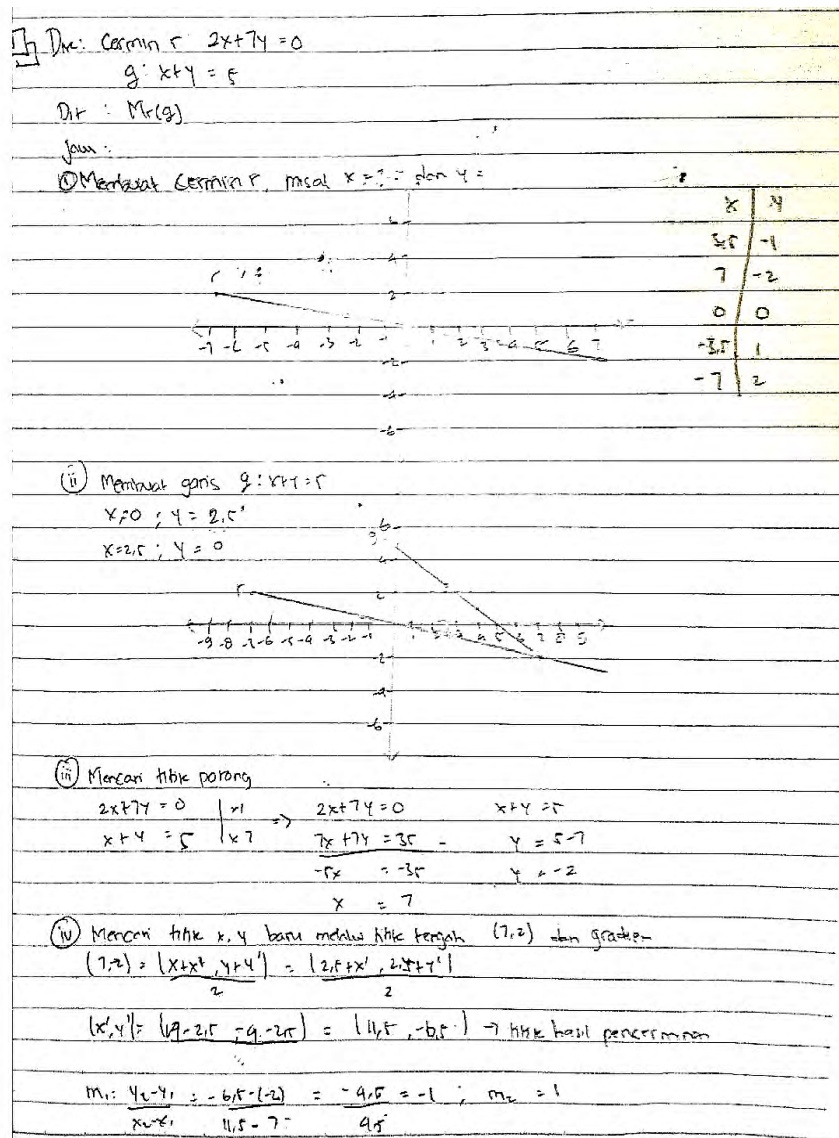 Dik: Cermin r 2x+7y=0
g: x+y = 5
Dit : Mr(g)
Jaw :
(i) Membuat cermin r, misal x = dan y =
x | y
3,5 | -1
7 | -2
0 | 0
-3,5 | 1
-7 | 2
6
4
r
2
-7 -6 -5 -4 -3 -2 -1 1 2 3 4 5 6 7
-2
-4
-6
(ii) Membuat garis g: x+y=5
x=0 ; y = 2,5
x=2,5 ; y = 0
6
g
4
r 2
-9 -8 -7 -6 -5 -4 -3 -2 -1 1 2 3 4 5 6 7 8 9
-2
-4
-6
(iii) Mencari titik potong
2x+7y = 0 | x1 => 2x+7y = 0 x+y = 5
x+y = 5 | x7 7x+7y = 35 - y = 5-7
-5x = -35 y = -2
x = 7
(iv) Mencari titik x, y baru melalui titik tengah (7,2) dan gradien
(7,-2) = (x+x', y+y')/2 = (2,5+x', 2,5+y')/2
(x',y') = (19-2,5, -9-2,5) = (11,5, -6,5) → titik hasil pencerminan
m₁: y₂-y₁/x₂-x₁ = -6,5-(-2)/11,5-7 = -4,5/4,5 = -1 ; m₂ = 1